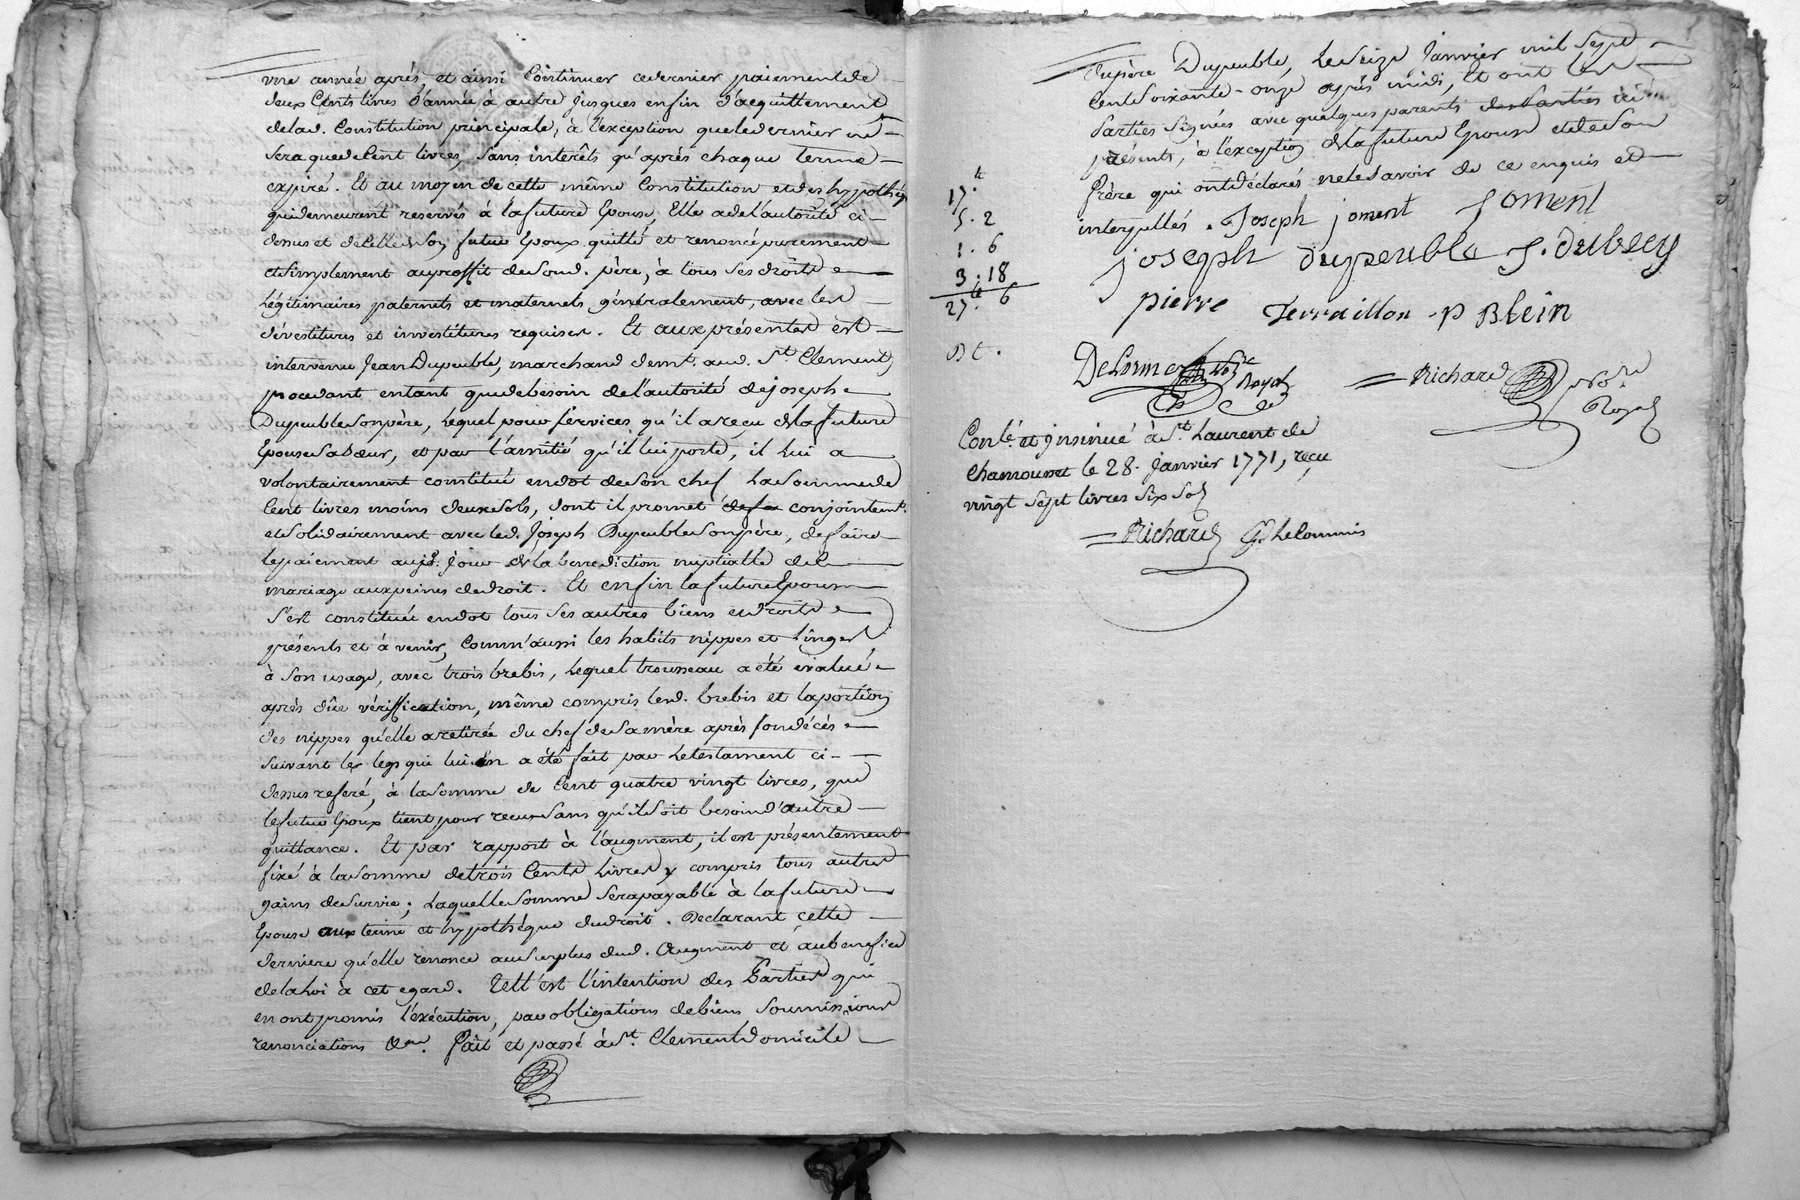 une année après et ainsi Continuer ce dernier paiement de
deux Cents livres d'année à autre jusques enfin d'acquittement
de lad. Constitution principale, à l'exception que le dernier ne
sera que de Cent livres, sans interêts qu'après chaque terme
expiré. Et au moyen de cette même Constitution et des hypothéq
qui demeurent reservés à la future Epouse, Elle a de l'autorité ci-
dessus et de celle de son futur Epoux quitté et renoncé purement
et simplement au proffit de sond. père, à tous ses droits
Légitimaires paternels et maternels généralement, avec les
dévestitures et investitures requises. Et aux présentes est
intervenu Jean Dupeuble, marchand demt. aud. St. Clement,
procedant entant que de besoin de l'autorité de joseph
Dupeuble son père, Lequel pour services qu'il a reçu de la future
Epouse sa sœur, et par l'amitié qu'il lui porte, il lui a
volontairement constitué en dot de son chef La somme de
Cent livres moins deux sols, dont il promet conjointemt.
et solidairement avec led. Joseph Dupeuble son père, de faire
le paiement au jour de la benediction nuptialle de
mariage aux peines de droit. Et enfin la future Epouse
s'est constituée en dot tous ses autres biens et droits
présents et à venir, Comm'aussi les habits nippes et Linges
à son usage, avec trois brebis, Lequel trousseau a été évalué
après dûe vériffication, même compris lesd. brebis et la portion
des nippes qu'elle a retirée du chef de sa mère après son décès
suivant les legs qui lui en a été fait par Le testament ci-
dessus referé, à la somme de Cent quatre vingt livres, que
le futur Epoux tient pour reçu sans qu'il soit besoin d'autre
quittance. Et par rapport à l'augment, il est présentement
fixé à la somme de trois Cents Livres y compris tous autres
gains de survie; Laquelle somme sera payable à la future
Epouse aux terme et hypothéque du droit. Declarant cette
derniere qu'elle renonce au surplus dud. Augment et au benefice
de la Loi à cet egard. Tell'est l'intention des Parties qui
en ont promis l'exécution, par obligations de biens soumissions
renonciations &a. Fait et passé à St. Clement domicile
du père Dupeuble, Le seize Janvier mil sept
Cent soixante-onze après midi, Et ont les
Parties signées avec quelques parents des Parties ici
présents, à l'exception de la future Epouse et de son
frère qui ont déclarés ne le savoir de ce enquis et
interpellés. Joseph joment J oment
joseph dupeuble J. Dubecy
pierre Terraillon P Blein
17.lt
5. 2
1. 6
3. 18
27.lt 6
Delorme Nore Royal
Richard Nore. Royal
Conlé. et insinué à St. Laurent de
Chamousset le 28. janvier 1771, reçu
vingt sept livres six sol
Richard Gr. le Commis